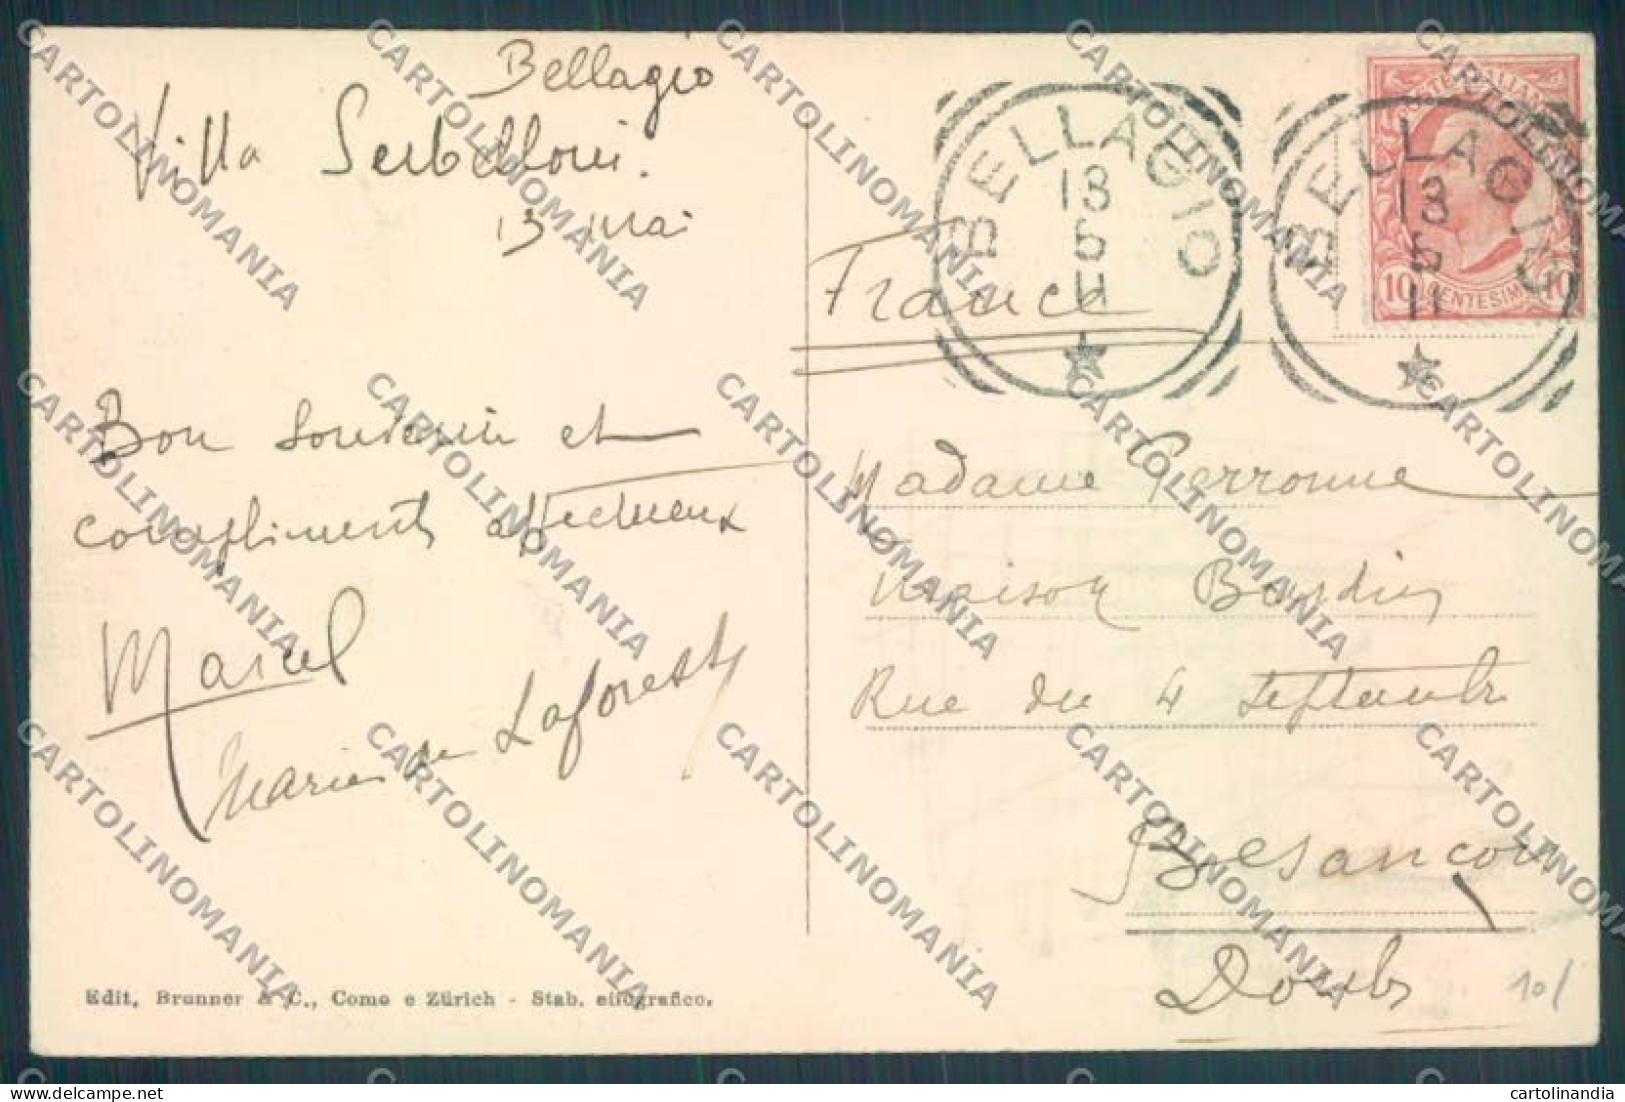 Bellagio
Villa Serbelloni.
13 Mai
Bon souvenir et
compliments affectueux
Marcel
Marie de Laforest
Edit. Brunner & C., Como e Zürich - Stab. eliografico.
BELLAGIO
13
5
11
BELLAGIO
13
5
11
POSTE ITALIANE
10 CENTESIMI 10
France
Madame Perronne
Maison
Rue du 4 Septembre
Besançon
Doubs
10/
CARTOLINOMANIA
cartolinandia